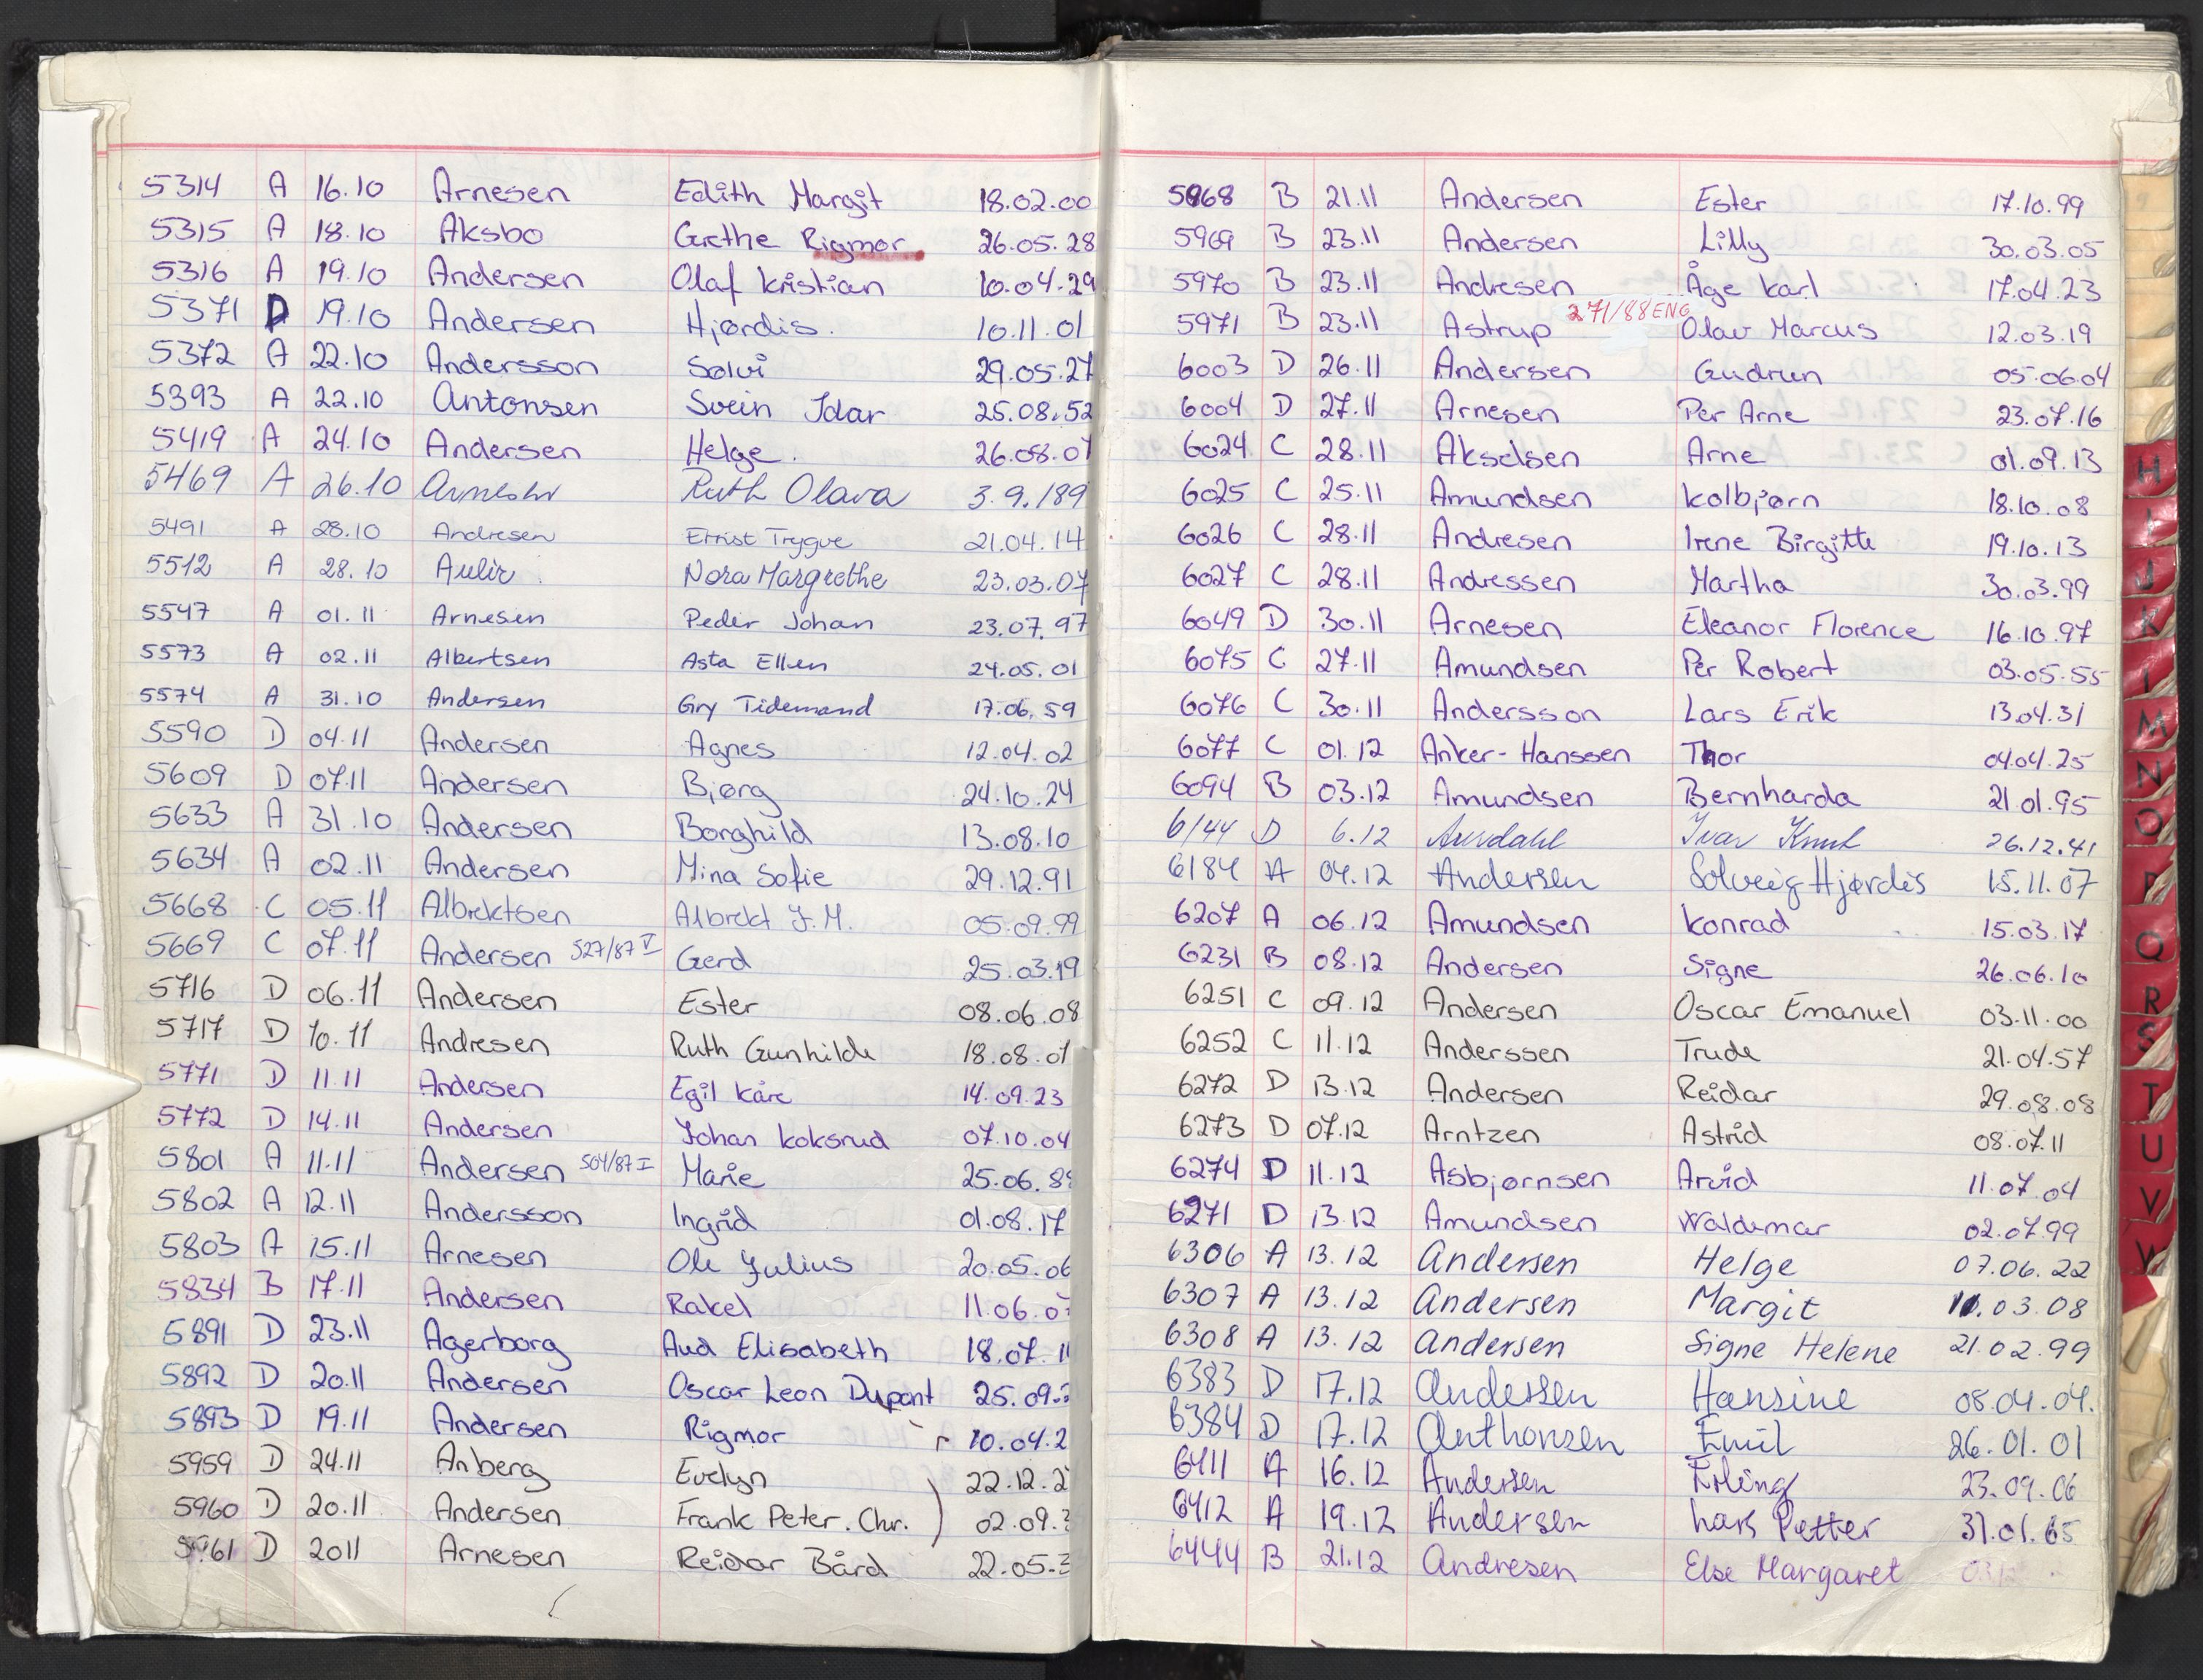 5314 A 16.10 Arnesen Edith Margit 18.02.00
5315 A 18.10 Aksbo Grethe Rigmor 26.05.28
5316 A 19.10 Andersen Olaf Kristian 10.04.29
5371 D 19.10 Andersen Hjørdis. 10.11.01
5372 A 22.10 Andersson Sølvi 29.05.27
5393 A 22.10 Antonsen Svein Idar 25.08.52
5419 A 24.10 Andersen Helge. 26.08.07
5469 A 26.10 Arnesen Ruth Olava 3.9.189
5491 A 28.10 Andresen Ernst Trygve 21.04.14
5512 A 28.10 Aulie Nora Margrethe 23.03.07
5547 A 01.11 Arnesen Peder Johan 23.07.97
5573 A 02.11 Albertsen Asta Ellen 24.05.01
5574 A 31.10 Andersen Gry Tidemand 17.06.59
5590 D 04.11 Andersen Agnes 12.04.02
5609 D 07.11 Andersen Bjørg 24.10.24
5633 A 31.10 Andersen Borghild 13.08.10
5634 A 02.11 Andersen Mina Sofie 29.12.91
5668 C 05.11 Albrektsen Albrekt J.M. 05.09.99
5669 C 07.11 Andersen 527/87 V Gerd 25.03.19
5716 D 06.11 Andersen Ester 08.06.08
5717 D 10.11 Andresen Ruth Gunhilde 18.08.07
5771 D 11.11 Andersen Egil Kåre 14.09.23
5772 D 14.11 Andersen Johan Koksrud 07.10.04
5801 A 11.11 Andersen 504/87 I Marie 25.06.8
5802 A 12.11 Andersson Ingrid 01.08.17
5803 A 15.11 Arnesen Ole Julius 20.05.06
5834 B 17.11 Andersen Rakel 11.06.0
5891 D 23.11 Agerborg Aud Elisabeth 18.07.1
5892 D 20.11 Andersen Oscar Leon Dupont 25.09.
5893 D 19.11 Andersen Rigmor 10.04.2
5959 D 24.11 Anberg Evelyn 22.12.2
5960 D 20.11 Andersen Frank Peter. Chr. 02.09.3
5961 D 2011 Arnesen Reidar Bård 22.05.3
5968 B 21.11 Andersen Ester 17.10.99
5969 B 23.11 Andersen Lilly 30.03.05
5970 B 23.11 Andresen Åge Karl 17.04.23
5971 B 23.11 Astrup 271/88 ENG Olav Marcus 12.03.19
6003 D 26.11 Andersen Gudrun 05.06.04
6004 D 27.11 Arnesen Per Arne 23.07.16
6024 C 28.11 Akselsen Arne 01.09.13
6025 C 25.11 Amundsen Kolbjørn 18.10.08
6026 C 28.11 Andresen Irene Birgitte 19.10.13
6027 C 28.11 Andressen Martha 30.03.99
6049 D 30.11 Arnesen Eleanor Florence 16.10.97
6075 C 27.11 Amundsen Per Robert 03.05.55
6076 C 30.11 Andersson Lars Erik 13.04.31
6077 C 01.12 Anker-Hanssen Thor 04.04.25
6094 B 03.12 Amundsen Bernharda 21.01.95
6144 D 6.12 Aurdahl Ivar Knut 26.12.41
6184 A 04.12 Andersen Solveig Hjørdis 15.11.07
6207 A 06.12 Amundsen Konrad 15.03.17
6231 B 08.12 Andersen Signe 26.06.10
6251 C 09.12 Andersen Oscar Emanuel 03.11.00
6252 C 11.12 Anderssen Trude 21.04.57
6272 D 13.12 Andersen Reidar 29.08.08
6273 D 07.12 Arntzen Astrid 08.07.11
6274 D 11.12 Asbjørnsen Arvid 11.07.04
6271 D 13.12 Amundsen Waldemar 02.07.99
6306 A 13.12 Andersen Helge 07.06.22
6307 A 13.12 Andersen Margit 11.03.08
6308 A 13.12 Andersen Signe Helene 21.02.99
6383 D 17.12 Andersen Hansine 08.04.04.
6384 D 17.12 Anthonsen Emil 26.01.01
6411 A 16.12 Andersen Erling 23.09.06
6412 A 19.12 Andersen Lars Petter 31.01.65
6444 B 21.12 Andresen Else Margaret
H
I
J
K
L
M
N
O
P
Q
R
S
T
U
V
W